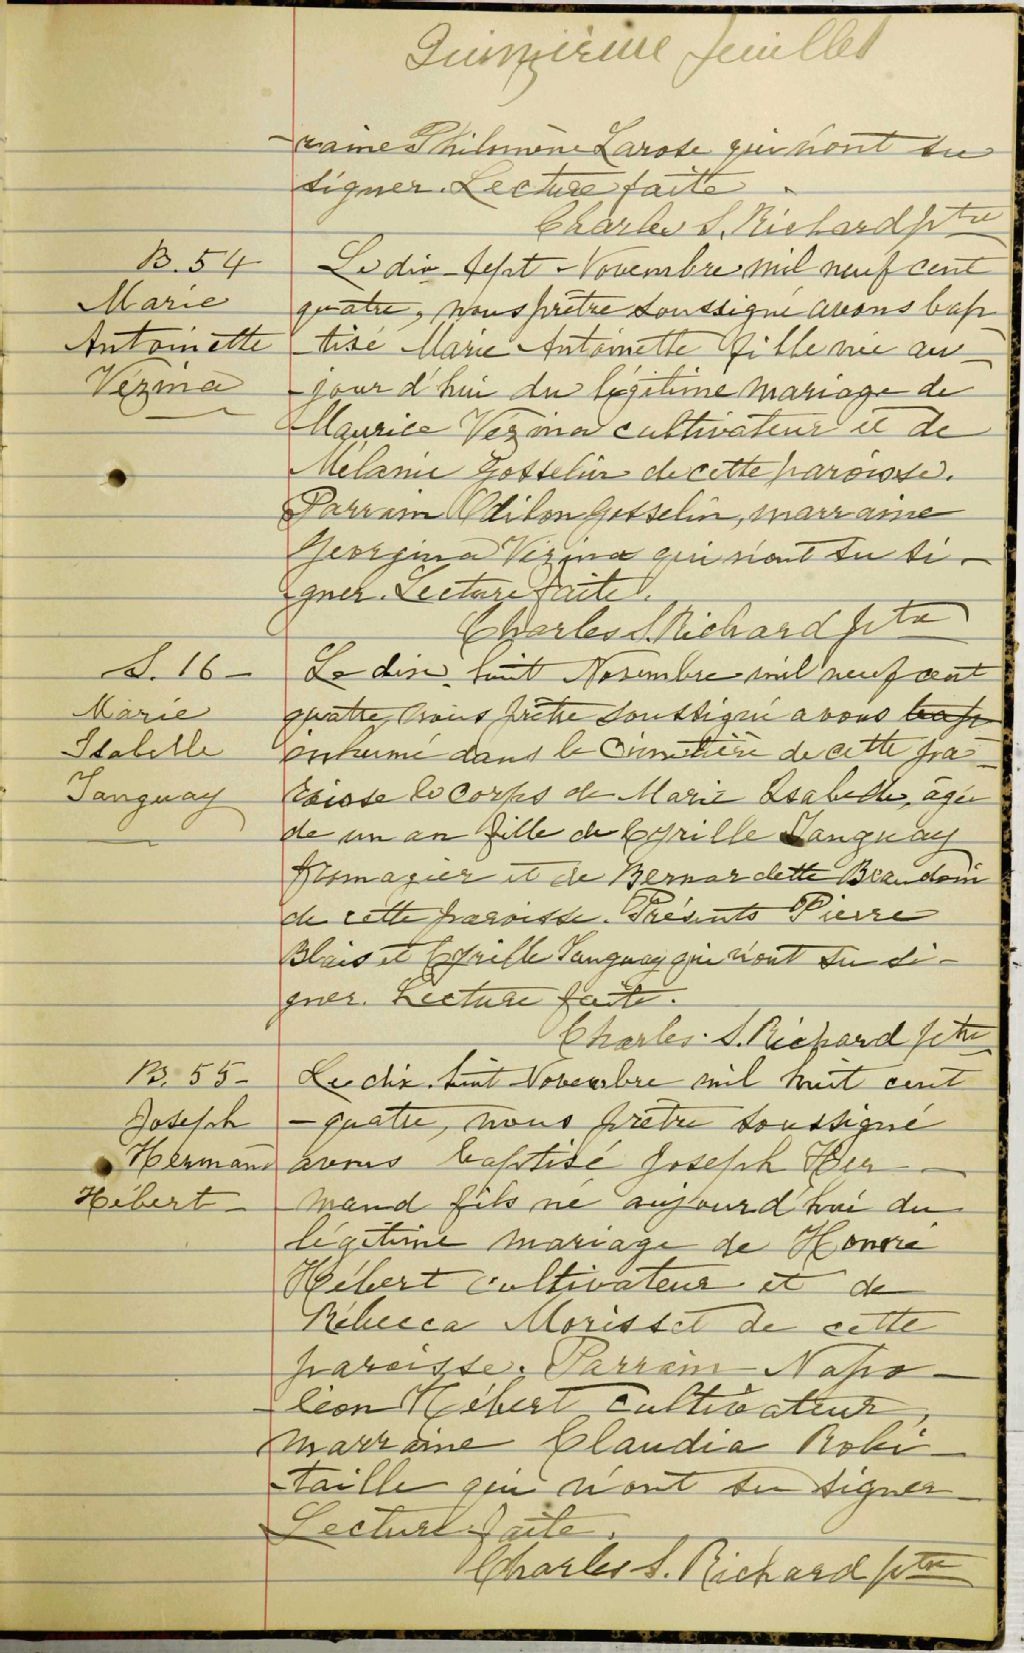 Quinzième feuillet
-raine Philomène Larose qui n'ont su
signer. Lecture faite.
Charles S. Richard ptre
B. 54
Marie
Antoinette
Vézina
Le dix-sept Novembre mil neuf cent
quatre, nous prêtre soussigné avons bap
-tisé Marie Antoinette fille née au-
-jour d'hui du légitime mariage de
Maurice Vézina cultivateur et de
Mélanie Gosselin de cette paroisse.
Parrain Odilon Gosselin, marraine
Georgina Vézina qui n'ont su si-
-gner. Lecture faite.
Charles S. Richard ptre
S. 16-
Marie
Isabelle
Tanguay
Le dix-huit Novembre mil neuf cent
quatre, nous prêtre soussigné avons bap
inhumé dans le Cimetière de cette pa-
roisse le corps de Marie Isabelle, âgée
de un an fille de Cyrille Tanguay
fromagier et de Bernardette Beaudoin
de cette paroisse. Présents Pierre
Blais et Cyrille Tanguay qui n'ont su si-
gner. Lecture faite.
Charles. S. Richard ptre
B. 55-
Joseph
Hermand
Hébert-
Le dix-huit Novembre mil huit cent
-quatre, nous prêtre soussigné
avons baptisé Joseph Her-
mand fils né aujourd'hui du
légitime mariage de Honoré
Hébert cultivateur et de
Rébecca Morisset de cette
paroisse. Parrain Napo-
-léon Hébert cultivateur,
marraine Claudia Robi-
-taille qui n'ont su signer
Lecture faite.
Charles S. Richard ptre